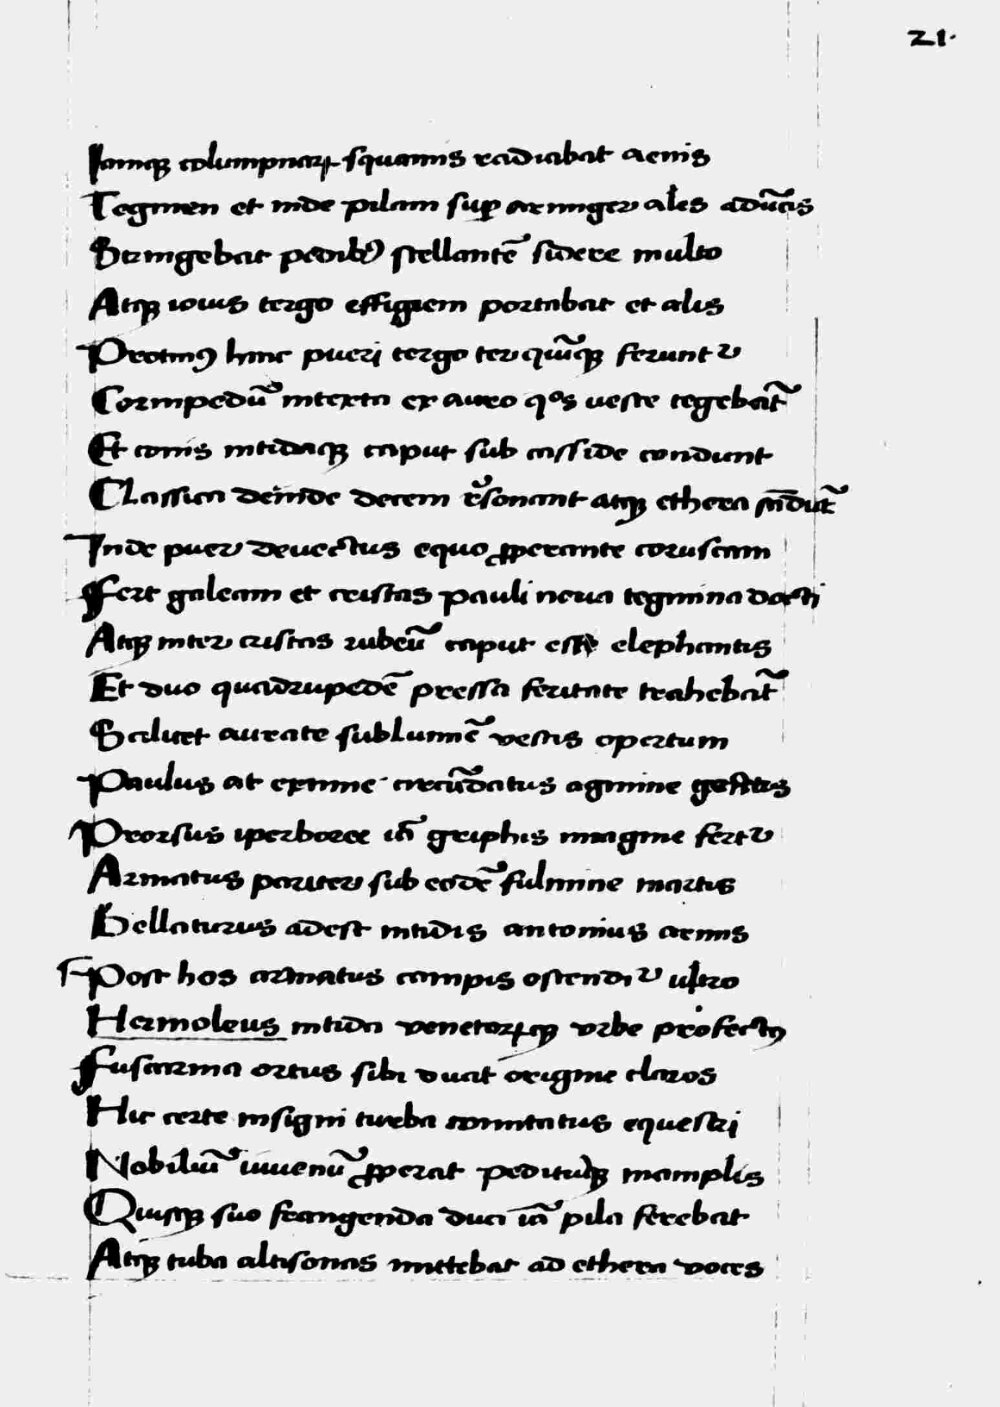 21.
Iamqꝫ columpnarꝝ squamis radiabat aenis
Tegmen et inde pilam suꝑ armiger ales adūcis
Stringebat pedibꝰ stellantē sidere multo
Atqꝫ iouis tergo effigiem portabat et alis
Protinꝰ hinc pueri tergo ter quīqꝫ feruntᷣ
Cornipedū intexta ex auro qͦs ueste tegebat᷑
Et conis nitidasqꝫ caput sub casside condunt
Classica deinde decem r̄sonant atqꝫ ethera scādūt
Inde puer deuectus equo ꝓperante coruscam
Fert galeam et cristas pauli noua tegmina docti
Atqꝫ inter cristas rubeū caput esse elephantis
Et duo quadrupedē pressa feritate trahebāt
Scilicet aurate sublimē vestis opertum
Paulus at eximie circūdatus agmine gentis
Prorsus iperboree iā griphis imagine fertᷣ
Armatus pariter sub eodē fulmine martis
Bellaturus adest nitidis antonius armis
Post hos armatus campis ostendiᷣ ultro
Hermoleus nitida venetorꝝqꝫ vrbe profectꝰ
Fuscarina ortus sibi ducit origine claros
Hic certe insigni turba comitatus equestri
Nobiliū iuuenū ꝓperat peditūqꝫ maniplis
Quisqꝫ suo frangenda duci iā pila ferebat
Atqꝫ tuba altisonas mittebat ad ethera voces